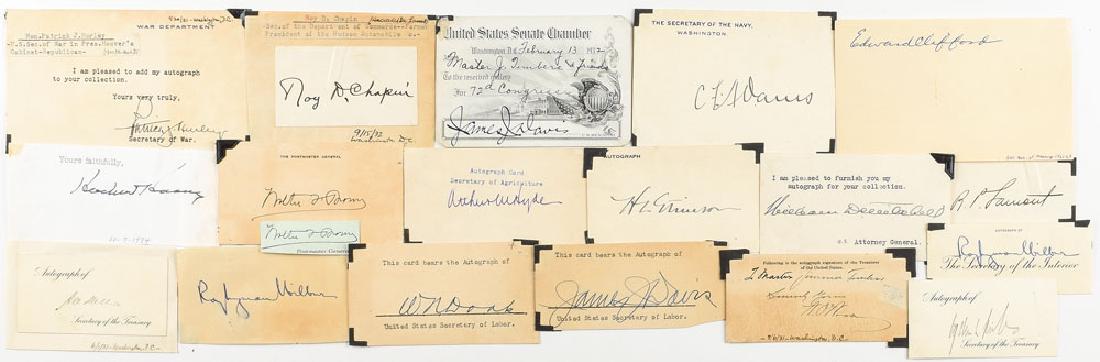 9/20/31-Washington, D.C.
WAR DEPARTMENT
Hon. Patrick J. Hurley
U.S. Sec. of War in Pres. Hoover's
Cabinet-Republican-
I am pleased to add my autograph
to your collection.
Yours very truly,
Patrick J. Hurley
Secretary of War.
Roy D. Chapin
-Sec. of the Department of Commerce-former
President of the Hudson Automobile Co.
Roy D. Chapin
9/15/32
Washington D.C.
United States Senate Chamber
Washington, D.C. February 13, 1932
Master J. Timbers & friends
To the reserved gallery
For 72d Congress
James J. Davis
THE SECRETARY OF THE NAVY.
WASHINGTON.
C F Adams
Edward Clifford
Yours faithfully,
THE POSTMASTER GENERAL
Walter F Brown
Walter F Brown
Postmaster General
Autograph Card
Secretary of Agriculture
Arthur M Hyde
AUTOGRAPH
H L Stimson
I am pleased to furnish you my
autograph for your collection.
William D Mitchell
U.S. Attorney General.
R. P. Lamont
AUTOGRAPH OF
Ray Lyman Wilbur
The Secretary of the Interior
Autograph of
Secretary of the Treasury
Washington, D.C.-
Ray Lyman Wilbur
This card bears the Autograph of
W N Doak
United States Secretary of Labor.
This card bears the Autograph of
James J Davis
United States Secretary of Labor.
Following is the autograph signature of the Treasurer
of the United States.
To Master
Sincerely Yours
-Washington, D.C.
Autograph of
Secretary of the Treasury